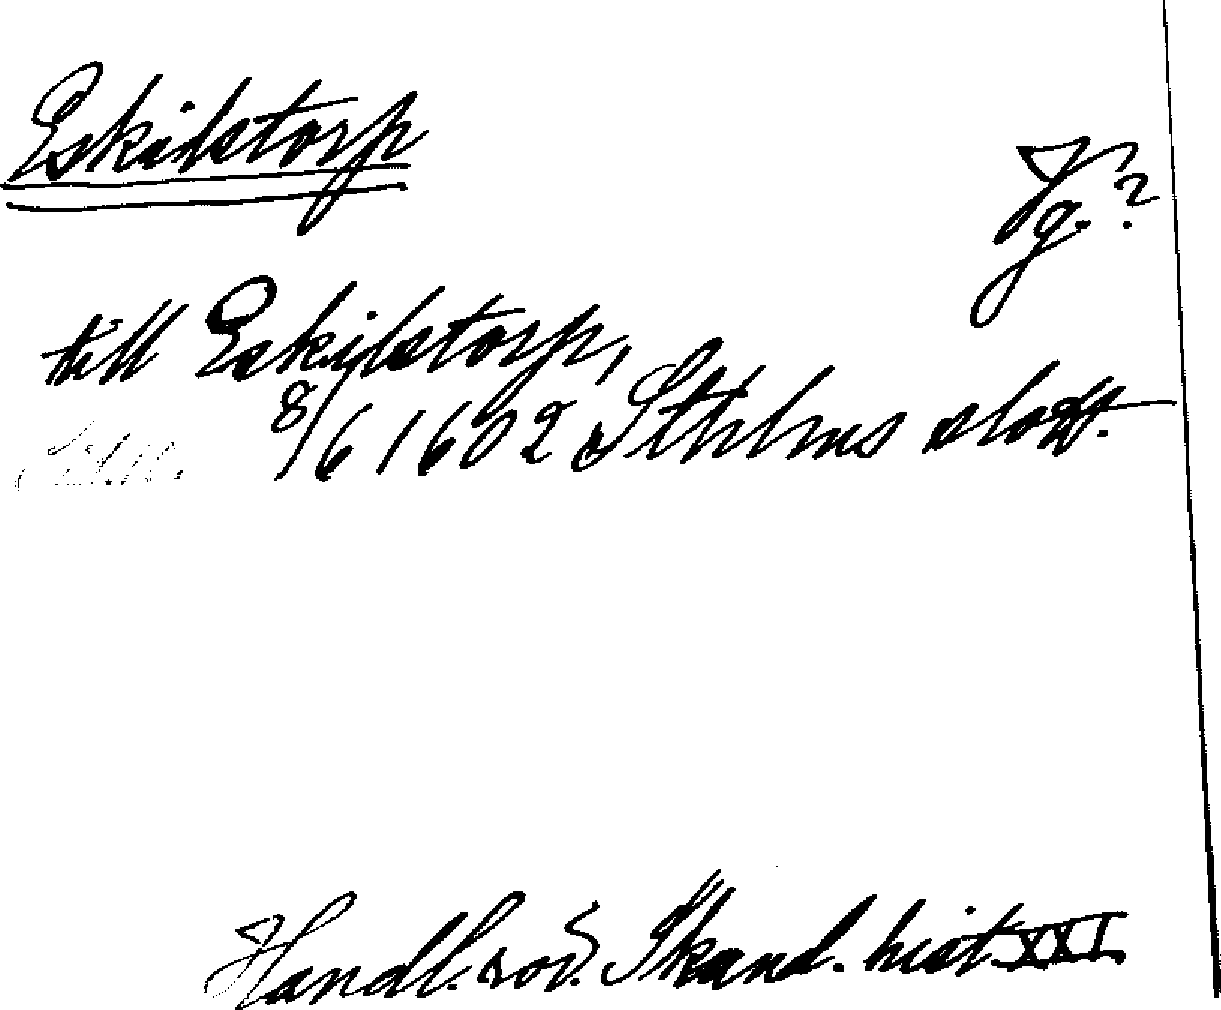 Eskilstorp
Fg.?
till Eskilstorp,
8/6 1602 Sthlms slott.
Handl. rör. Skand. hist. XXI.